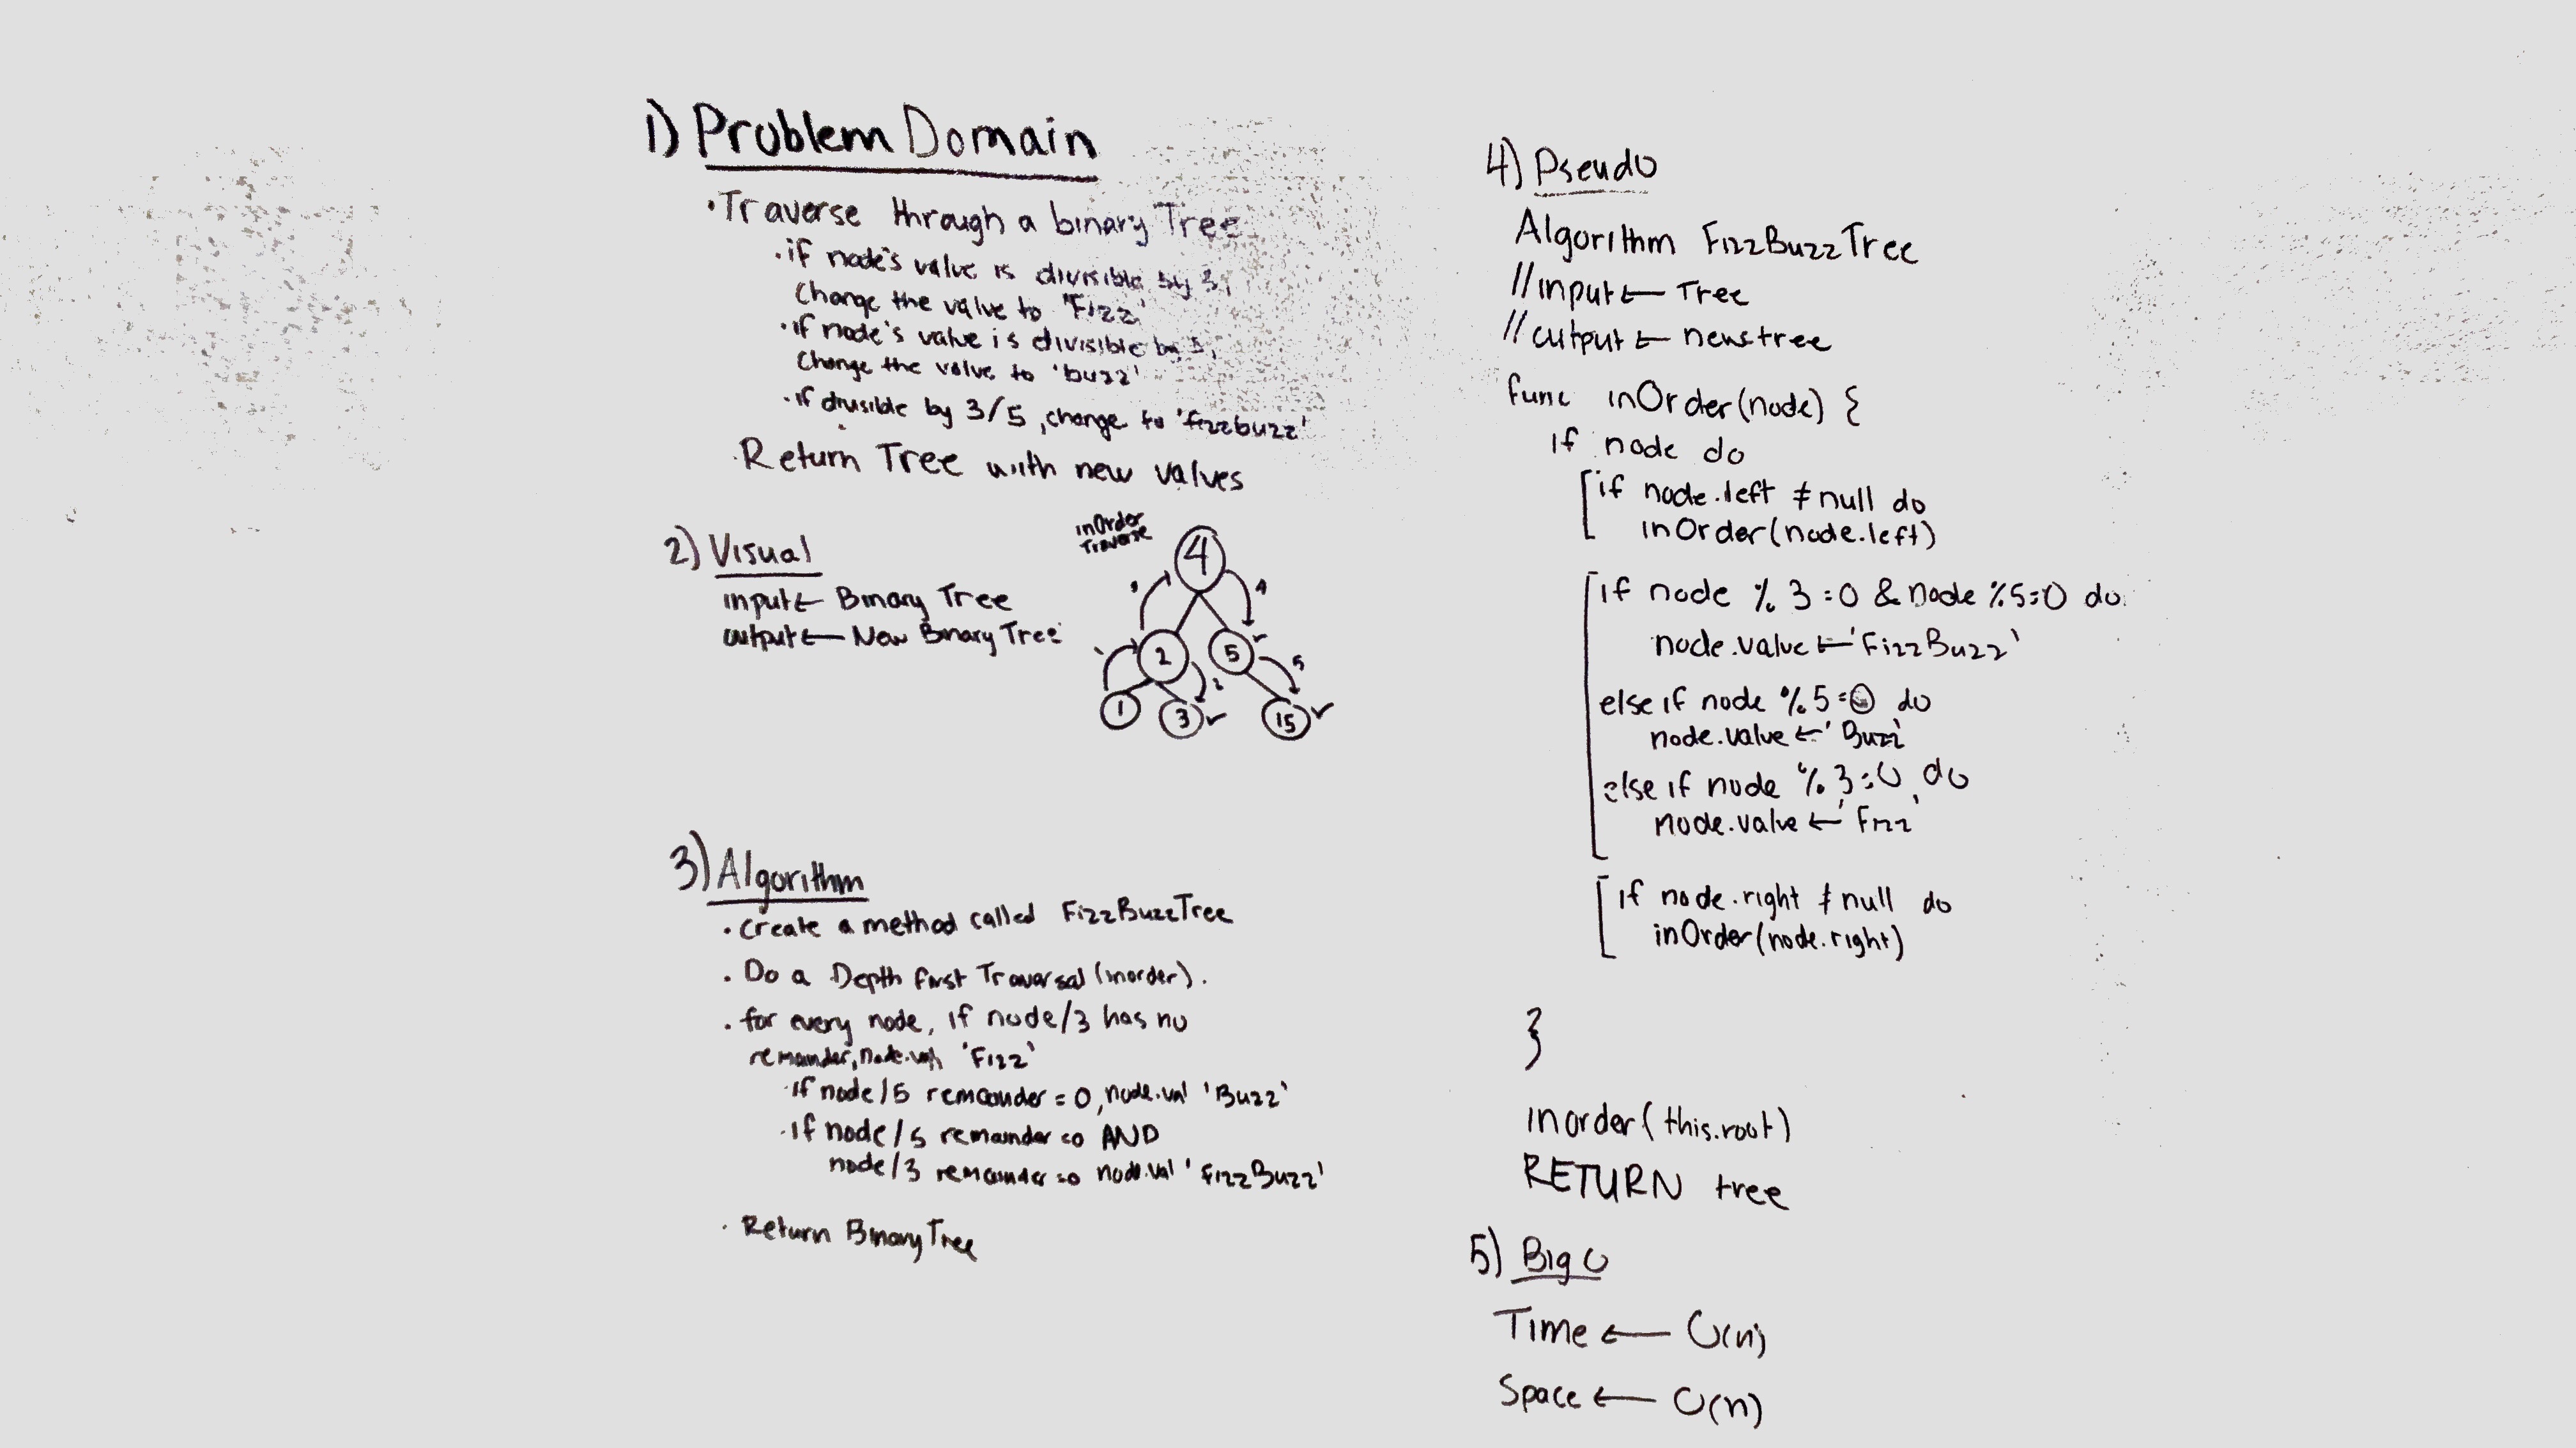 1) Problem Domain
• Traverse through a binary Tree
• if node's value is divisible by 3,
Change the value to 'Fizz'
• if node's value is divisible by 5,
Change the value to 'buzz'
• if divisible by 3/5, change to 'fizzbuzz'
• Return Tree with new values
2) Visual
input ← Binary Tree
output ← New Binary Tree
inOrder
Traverse
4
3
4
2
5
1
2
5
1
3
15
3) Algorithm
• Create a method called FizzBuzzTree
• Do a Depth first Traversal (inorder).
• for every node, if node/3 has no
remainder, node.val 'Fizz'
• if node/5 remainder = 0, node.val 'Buzz'
• if node/5 remainder =0 AND
node/3 remainder =0 node.val 'FizzBuzz'
• Return Binary Tree
4) Pseudo
Algorithm FizzBuzzTree
// input ← Tree
// output ← new tree
func inOrder(node) {
if node do
if node.left ≠ null do
inOrder(node.left)
if node % 3 = 0 & node % 5 = 0 do
node.value ← 'FizzBuzz'
else if node % 5 = 0 do
node.value ← 'Buzz'
else if node % 3 = 0 do
node.value ← 'Fizz'
if node.right ≠ null do
inOrder(node.right)
}
inorder(this.root)
RETURN tree
5) Big O
Time ← O(n)
Space ← O(n)